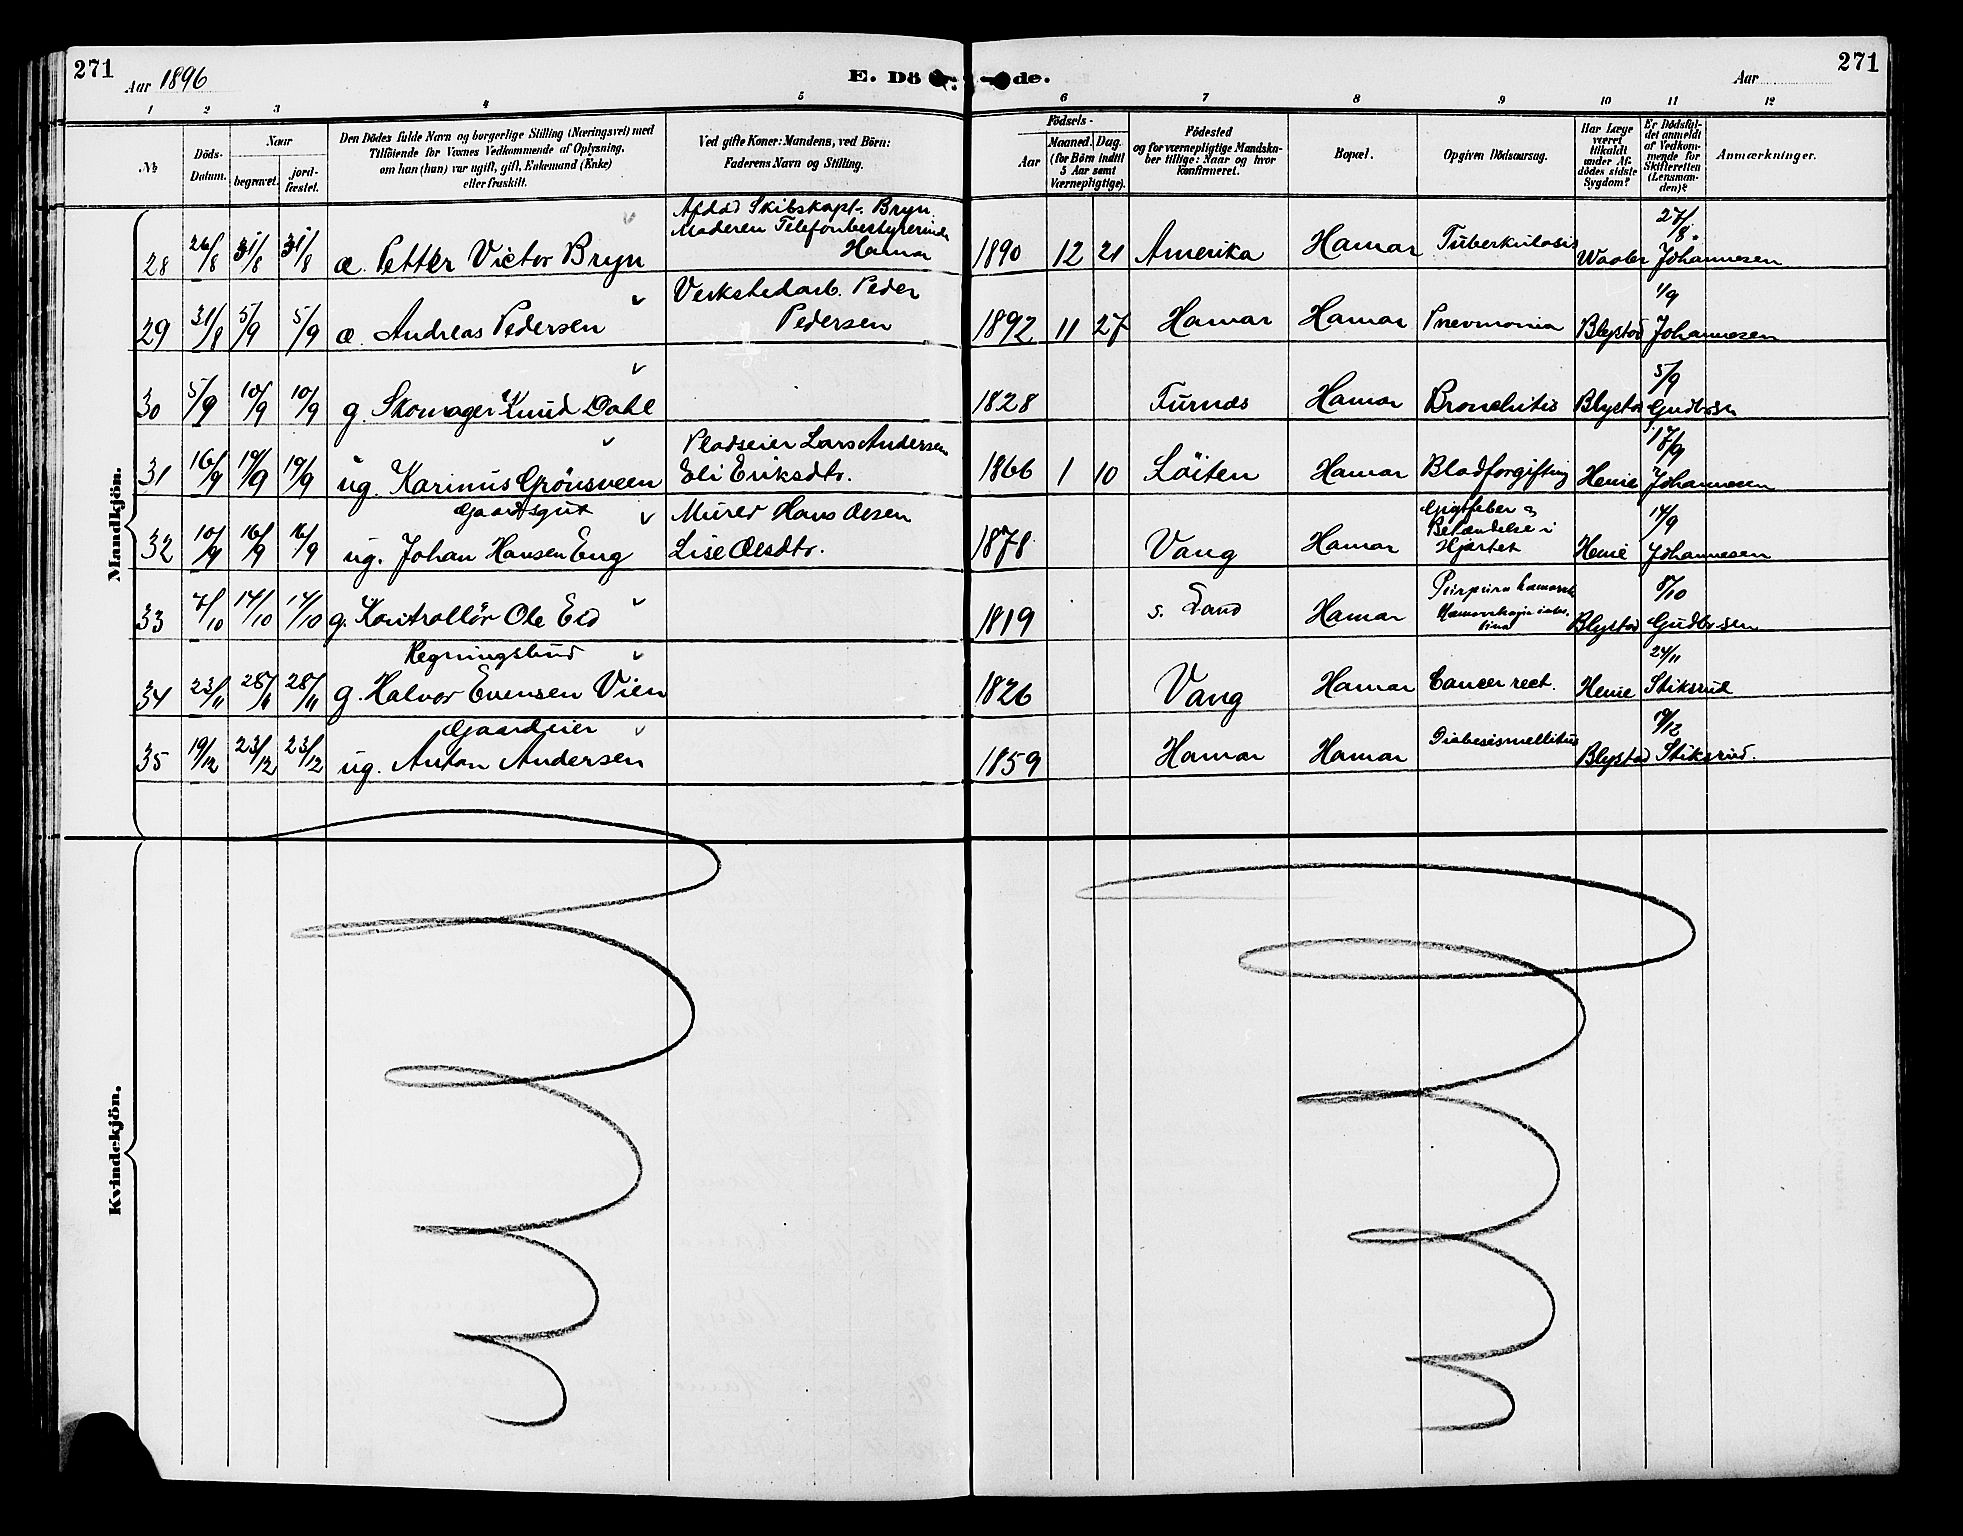 271
Aar 1896
E. Dö de.
Aar
271
1 2 3 4 5 6 7 8 9 10 11 12
№
Döds-Datum.
Naar
begravet.
jordfæstet.
Den Dödes fulde Navn og borgerlige Stilling (Næringsvei) med
Tilföiende for Voxnes Vedkommende af Oplysning,
om han (hun) var ugift, gift, Enkemand (Enke)
eller fraskilt.
Ved gifte Koner: Mandens, ved Börn:
Faderens Navn og Stilling.
Födsels-
Aar
Maaned. Dag.
(for Börn indtil
5 Aar samt
Værnepligtige).
Födested
og for værnepligtige Mandskaber tillige: Naar og hvor
konfirmeret.
Bopæl.
Opgiven Dödsaarsag.
Har Læge været tilkaldt under Afdödes sidste Sygdom?
Er Dödsfaldet anmeldt af Vedkommende for Skifteretten (Lensmanden)?
Anmærkninger.
Mandkjön.
28 26/8 31/8 31/8 æ. Petter Victor Bryn Afdöd Skibskapt. Bryn Moderen Telefonbestyrerinde Hamar 1890 12 21 Amerika Hamar Tuberkulosis Waaler 27/8. Johannesen
29 31/8 5/9 5/9 æ. Andreas Pedersen Verkstedarb. Peder Pedersen 1892 11 27 Hamar Hamar Pnevmonia Blystad 1/9 Johannesen
30 5/9 10/9 10/9 g. Skomager Knud Dahl 1828 Furnæs Hamar Bronchitis Blystad 5/9 Gudbrsen
31 16/9 19/9 19/9 ug. Karinus Grönsveen Pladseier Lars Andersen Eli Eriksdtr. 1866 1 10 Löiten Hamar Blodforgiftning Heiie 17/9 Johannesen
32 10/9 16/9 16/9 Gaardsgut ug. Johan Hansen Eng Murer Hans Olsen Lise Olsdtr. 1878 Vang Hamar Gigtfeber og Betændelse i Hjertet Heiie 14/9 Johannesen
33 7/10 14/10 14/10 g. Kontrollör Ole Eid 1819 s. Land Hamar Purpura Blystad 8/10 Gudbrsen
34 23/11 28/11 28/11 Regningsbud g. Halvor Evensen Vien 1826 Vang Hamar Cancer rect. Heiie 24/11 Stiksrud
35 19/12 23/12 23/12 Gaardeier ug. Anton Andersen 1859 Hamar Hamar Diabesismellitus Blystad 19/12 Stiksrud.
Kvindekjön.